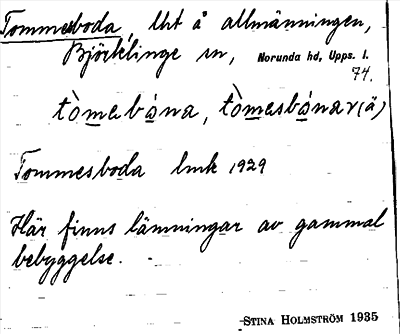 Tommesboda, Uht å allmänningen,
Björklinge sn, Norunda hd, Upps. l.
74.
tòmebòna, tòmesbònar (ä)
Tommesboda lmk 1929
Här finns lämningar av gammal
bebyggelse.
STINA HOLMSTRÖM 1935